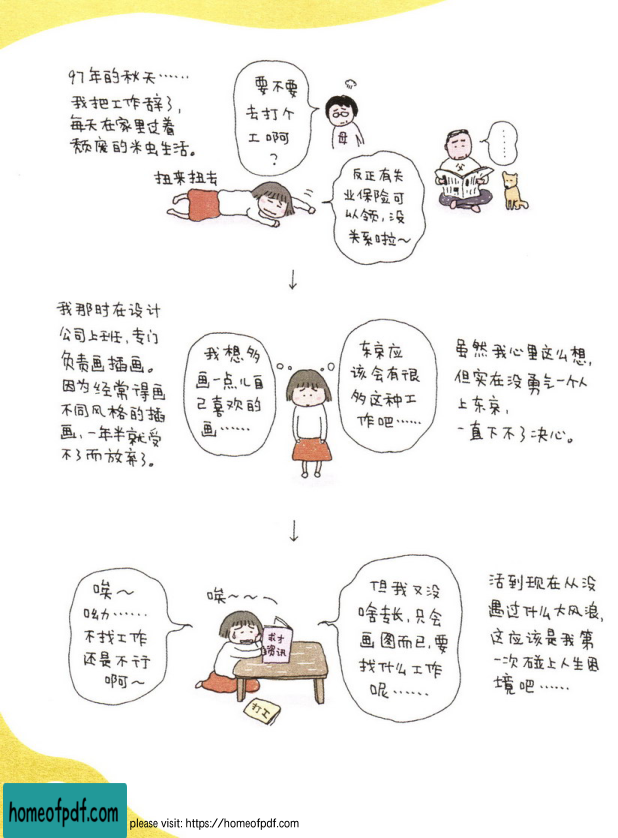 97年的秋天……
我把工作辞了，
每天在家里过着
颓废的米虫生活。
扭来扭去
要不要
去打个
工啊
？
母
反正有失
业保险可
以领，没
关系啦～
父
……
我那时在设计
公司上班，专门
负责画插画。
因为经常得画
不同风格的插
画，一年半就受
不了而放弃了。
我想多
画一点儿自
己喜欢的
画……
东京应
该会有很
多这种工
作吧……
虽然我心里这么想，
但实在没勇气一个人
上东京，
一直下不了决心。
唉～
呦……
不找工作
还是不行
啊～
唉～～～
求才
资讯
打工
但我又没
啥专长，只会
画图而已，要
找什么工作
呢……
活到现在从没
遇过什么大风浪，
这应该是我第
一次碰上人生困
境吧……
homeofpdf.com
please visit: https://homeofpdf.com